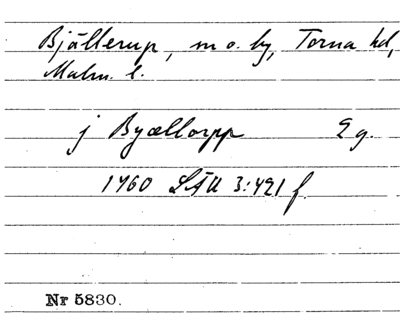 Bjällerup, sn o. by, Torna hd,
Malm. l.
j Byællorpp 2 g.
1460 LÄU 3:421 f.
Nr 5830.